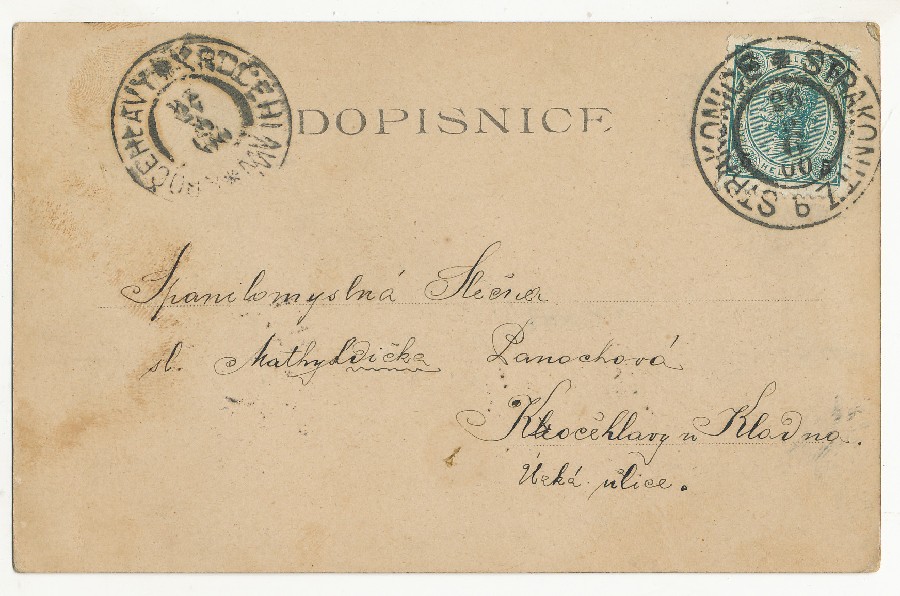 KROČEHLAVY * KROČEHLAWY *
DOPISNICE
STRAKONICE * STRAKONITZ 9
26
00
Spanilomyslná Slečna
sl. Mathyldička Panochová
Kročehlavy u Kladna.
Úzká ulice.